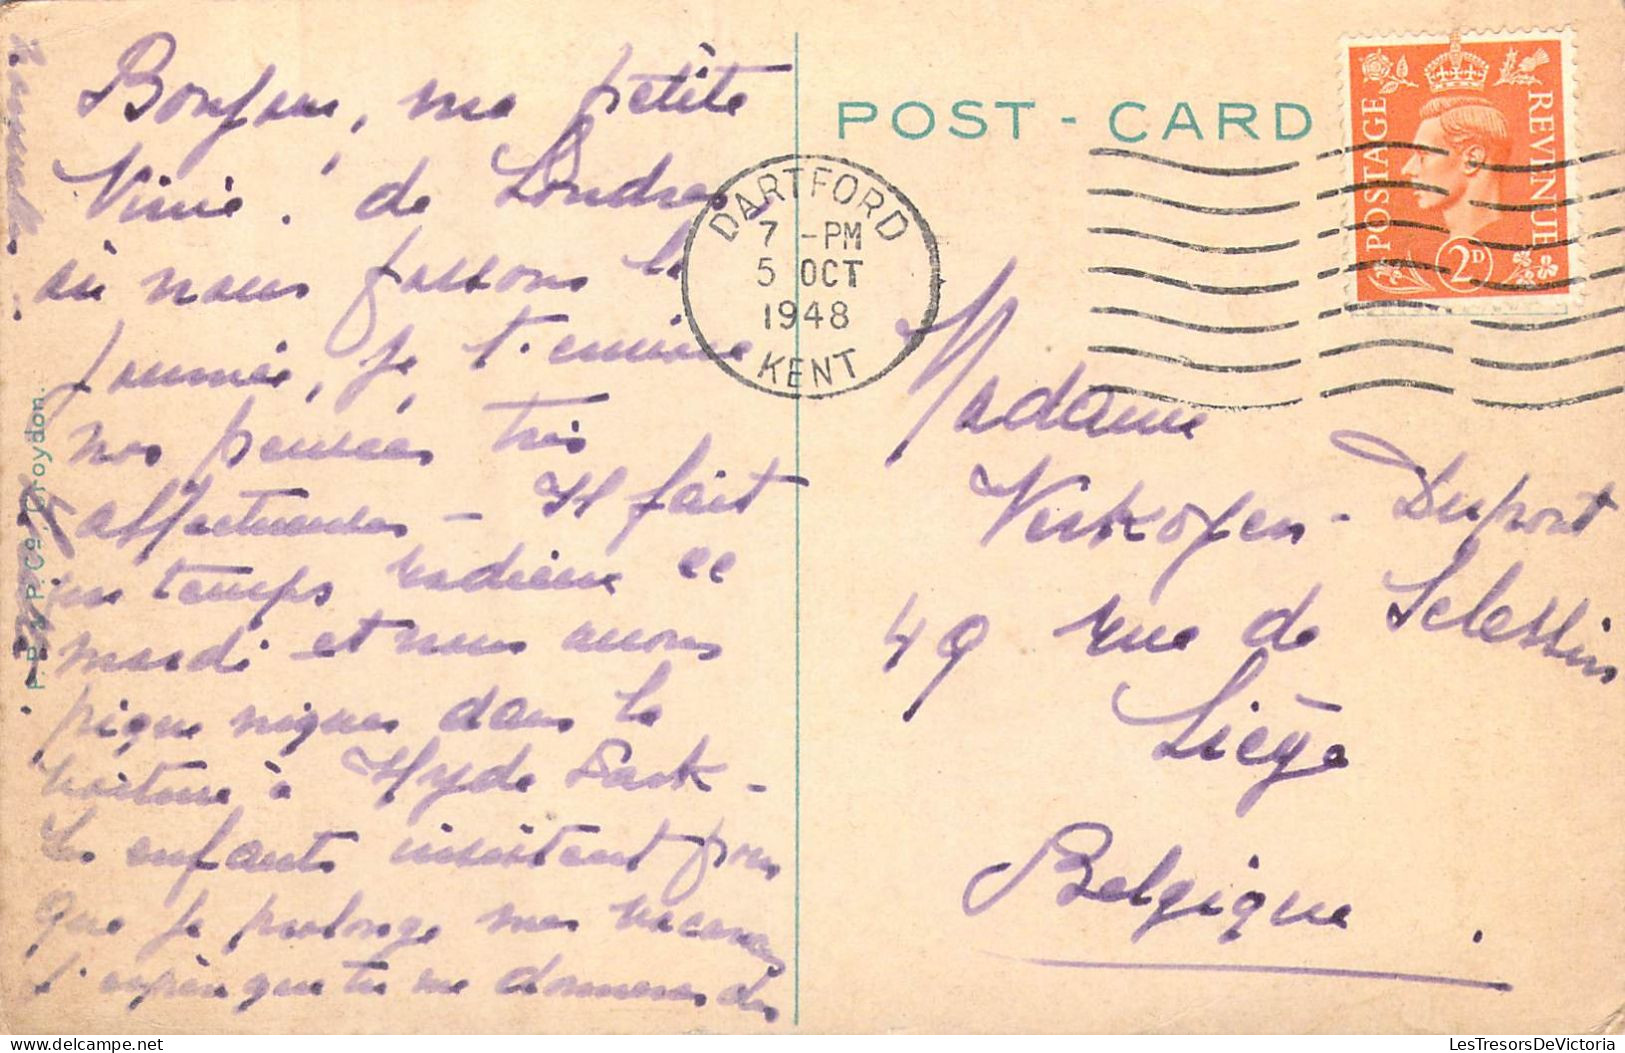 Bonjour, ma petite
Ninie. de Londres
où nous passons la
journée, je t'envoie
nos pensées très
affectueuses - Il fait
un temps radieux ce
mardi et nous avons
pique niqué dans la
voiture à Hyde Park -
Les enfants insistent pour
que je prolonge mes vacances
J'espère que tu me donneras des
P.P. & P. Co. Croydon.
POST - CARD
DARTFORD
7 - PM
5 OCT
1948
KENT
POSTAGE
REVENUE
2D
Madame
Verkofen - Dupont
49 rue de Sclessin
Liège
Belgique.
delcampe.net
LesTresorsDeVictoria